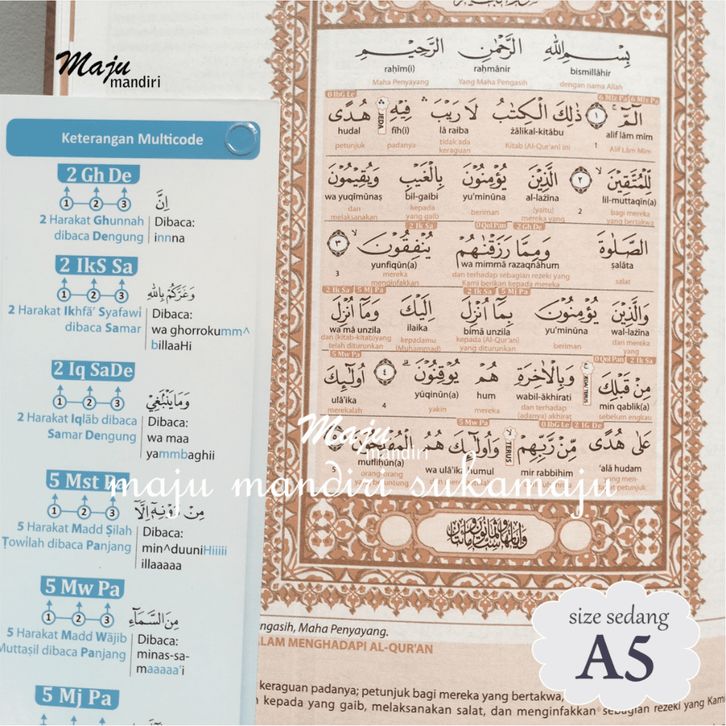 Maju
mandiri
Keterangan Multicode
2 Gh De
1 2 3
إِنَّ
2 Harakat Ghunnah
dibaca Dengung
Dibaca:
innna
2 IkS Sa
1 2 3
وَغَرَّكُمْ بِاللّٰهِ
2 Harakat Ikhfā' Syafawi
dibaca Samar
Dibaca:
wa ghorrokumm^
billaaHi
2 Iq SaDe
1 2 3
وَمَا يَنْبَغِي
2 Harakat Iqlāb dibaca
Samar Dengung
Dibaca:
wa maa
yammbaghii
5 Mst
1 2 3
مِنْ دُوْنِهٖٓ اِلَّا
5 Harakat Madd Ṣilah
Ṭowīlah dibaca Panjang
Dibaca:
min^duuniHiiiii
illaaaaa
5 Mw Pa
1 2 3
مِنَ السَّمَآءِ
5 Harakat Madd Wājib
Muttaṣil dibaca Panjang
Dibaca:
minas-sa-
maaaaa'i
5 Mj Pa
بِسْمِ اللّٰهِ الرَّحْمٰنِ الرَّحِيْمِ
bismillāhir raḥmānir raḥīm(i)
dengan nama Allah Yang Maha Pengasih Maha Penyayang
الۤمّۤ ۝١ ذٰلِكَ الْكِتٰبُ لَا رَيْبَ ۛ فِيْهِ ۛ هُدًى
alif lām mīm 1 żālikal-kitābu lā raiba fīh(i) hudal
Alif Lām Mīm Kitab (Al-Qur'an) ini tidak ada keraguan padanya petunjuk
لِّلْمُتَّقِيْنَ ۝٢ الَّذِيْنَ يُؤْمِنُوْنَ بِالْغَيْبِ وَيُقِيْمُوْنَ
lil-muttaqīn(a) 2 al-lażīna yu'minūna bil-gaibi wa yuqīmūnaṣ
bagi mereka yang bertakwa (yaitu) mereka yang beriman kepada yang gaib dan melaksanakan
الصَّلٰوةَ وَمِمَّا رَزَقْنٰهُمْ يُنْفِقُوْنَ ۝٣
ṣalāta wa mimmā razaqnāhum yunfiqūn(a) 3
salat dan terhadap sebagian rezeki yang Kami berikan kepada mereka mereka menginfakkan
وَالَّذِيْنَ يُؤْمِنُوْنَ بِمَآ اُنْزِلَ اِلَيْكَ وَمَآ اُنْزِلَ
wal-lażīna yu'minūna bimā unzila ilaika wa mā unzila
dan mereka yang beriman kepada (Al-Qur'an) yang diturunkan kepadamu (Muhammad) dan (kitab-kitab) yang telah diturunkan
مِنْ قَبْلِكَ وَبِالْاٰخِرَةِ هُمْ يُوْقِنُوْنَ ۝٤ اُولٰۤىِٕكَ
min qablik(a) wabil-ākhirati hum yūqinūn(a) 4 ulā'ika
sebelum engkau dan terhadap (adanya) akhirat mereka yakin merekalah
عَلٰى هُدًى مِّنْ رَّبِّهِمْ وَاُولٰۤىِٕكَ هُمُ الْمُفْلِحُوْنَ ۝٥
'alā hudam mir rabbihim wa ulā'ika humul mufliḥūn(a) 5
Maju
mandiri
maju mandiri sukamaju
ngasih, Maha Penyayang.
LAM MENGHADAPI AL-QUR'AN
keraguan padanya; petunjuk bagi mereka yang bertakwa,
kepada yang gaib, melaksanakan salat, dan menginfakkan sebagian rezeki yang Kami
size sedang
A5